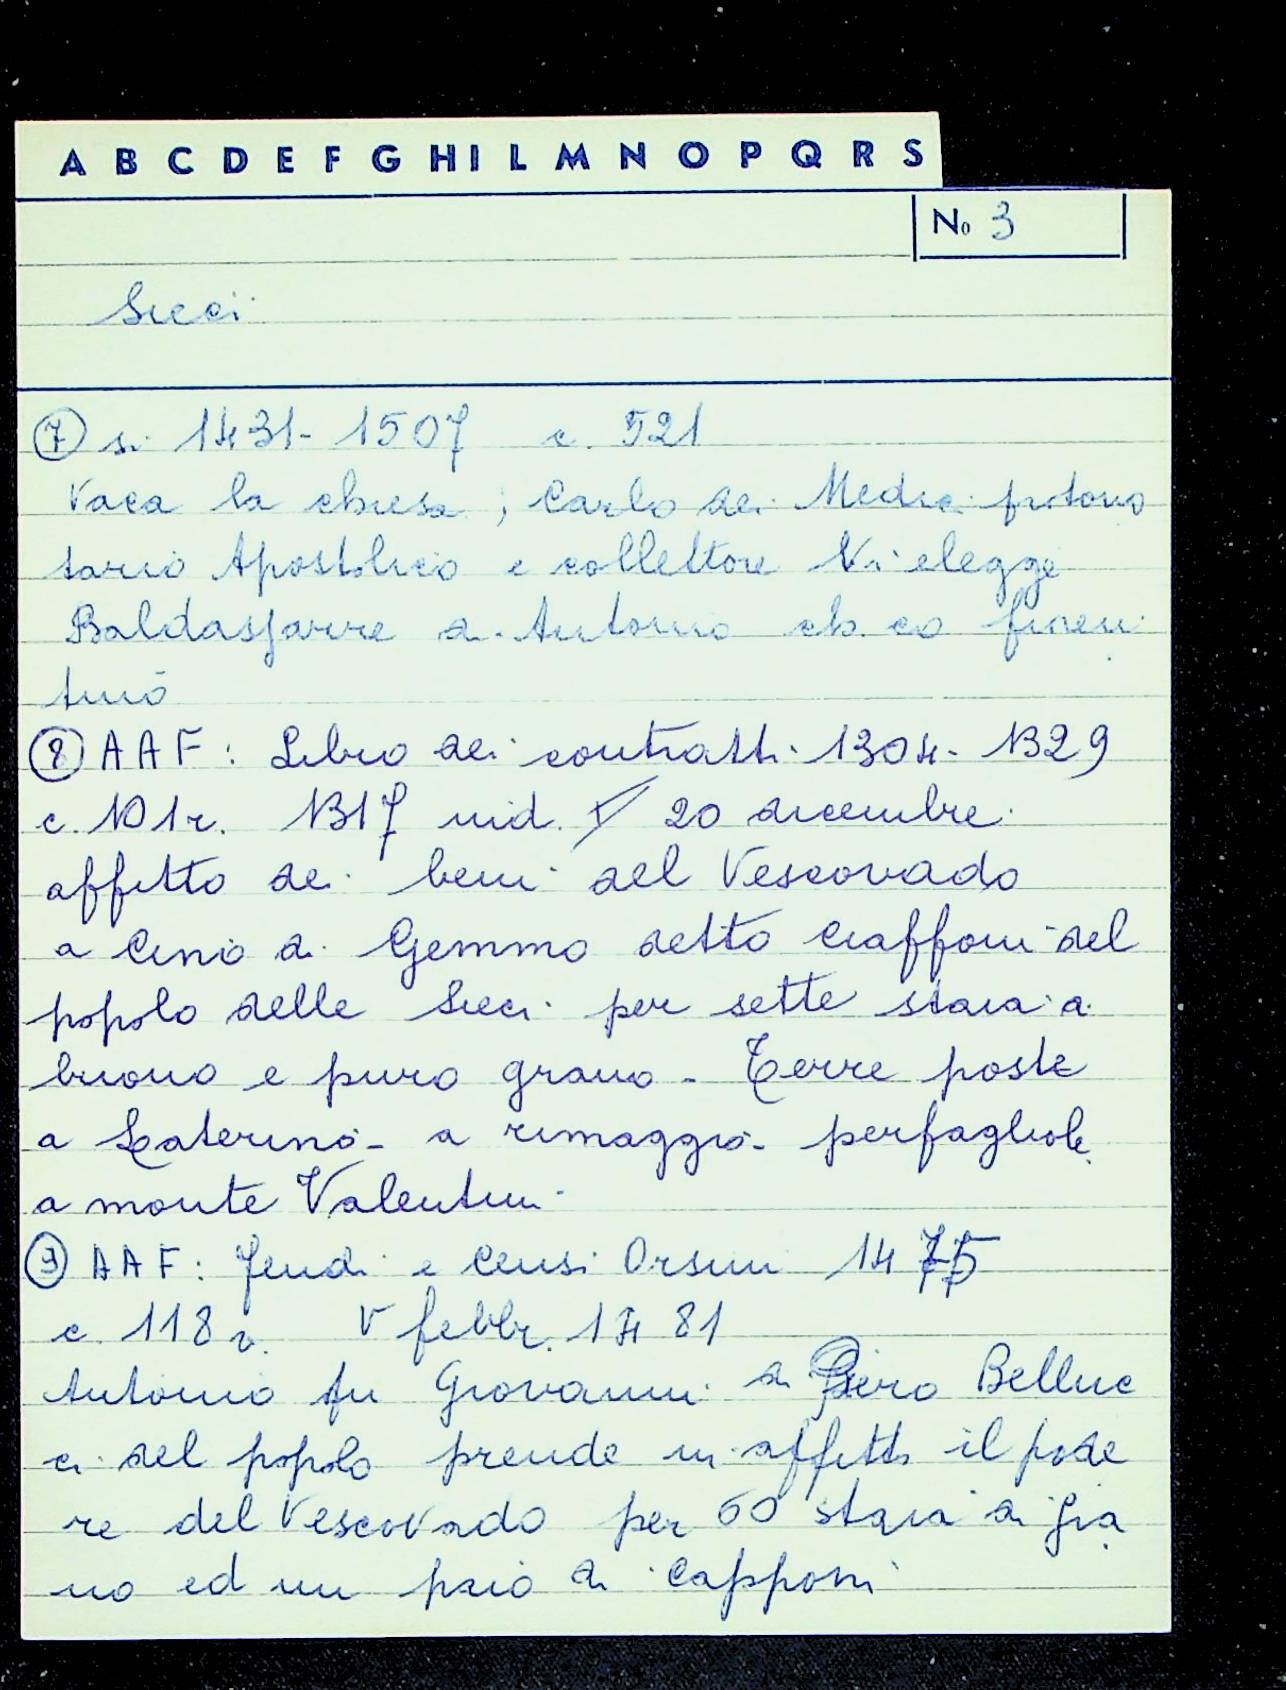 A B C D E F G H I L M N O P Q R S
No 3
Sieci
7 si 1431-1507 c. 521
Vaca la chiesa, Carlo dei Medici protono
tario Apostolico e collettore Vi elegge
Baldassarre di Antonio ch. co fioren
tino
8 AAF: Libro dei contratti 1304-1329
c. 101r. 1317 ind. 20 dicembre
affitto dei beni del Vescovado
a Cino di Gemmo detto Ciaffoni del
popolo delle Sieci per sette staia di
buono e puro grano - Terre poste
a Laterino - a rimaggio - perfagliole
a monte Valentini
9 AAF: Feudi e Censi Orsini 1475
c. 118 v. V febbr. 1481
Antonio fu Giovanni di Piero Belluc
ci del popolo prende in affitto il pode
re del Vescovado per 60 staia di gra
no ed un paio di Capponi